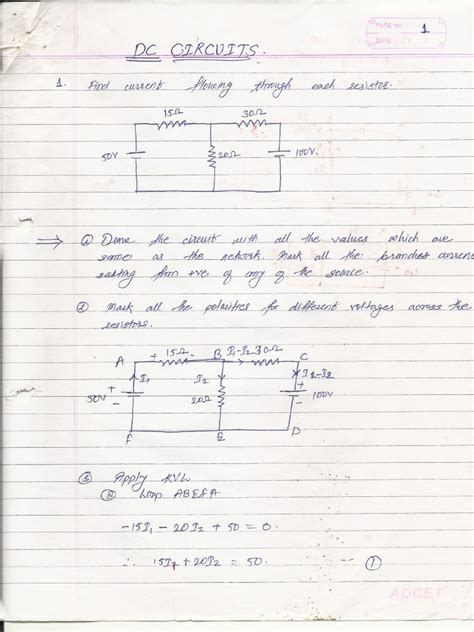 PAGE NO.
DATE
1
DC CIRCUITS.
1. Find current flowing through each resistor.
15Ω 30Ω
50V 20Ω 100V.
⇒ ① Draw the circuit with all the values which are
same as the network. Mark all the branches current
starting from +ve of any of the source.
② Mark all the polarities for different voltages across the
resistors.
A + 15Ω - B I1-I2 30Ω C
I1 I2 I1-I2
50V + - 20Ω + - 100V
F E D
③ Apply KVL
ⓐ Loop ABEFA
-15I1 - 20I2 + 50 = 0.
∴ 15I1 + 20I2 = 50. ①
ADCET